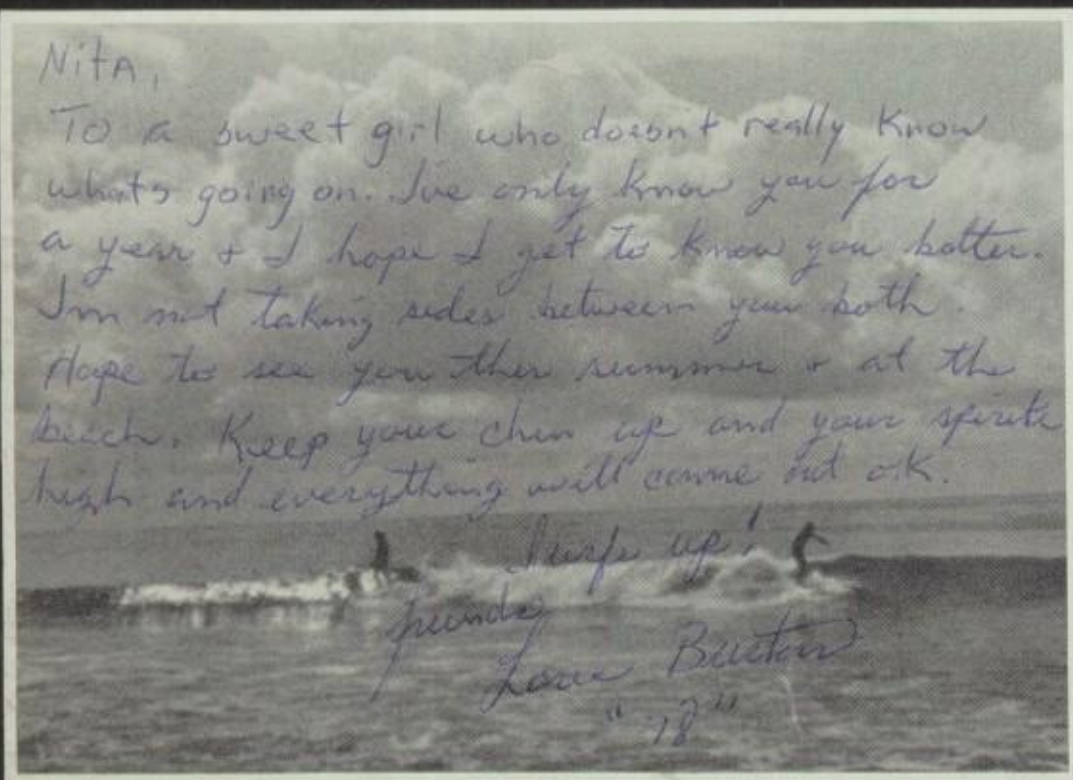 Nita,
To a sweet girl who doesn't really know
whats going on. Ive only know you for
a year + I hope I get to know you better.
Im not taking sides between you both.
Hope to see you this summer + at the
beach. Keep your chin up and your spirits
high and everything will come out o.k.
Surfs up!
friends
Burton
"78"